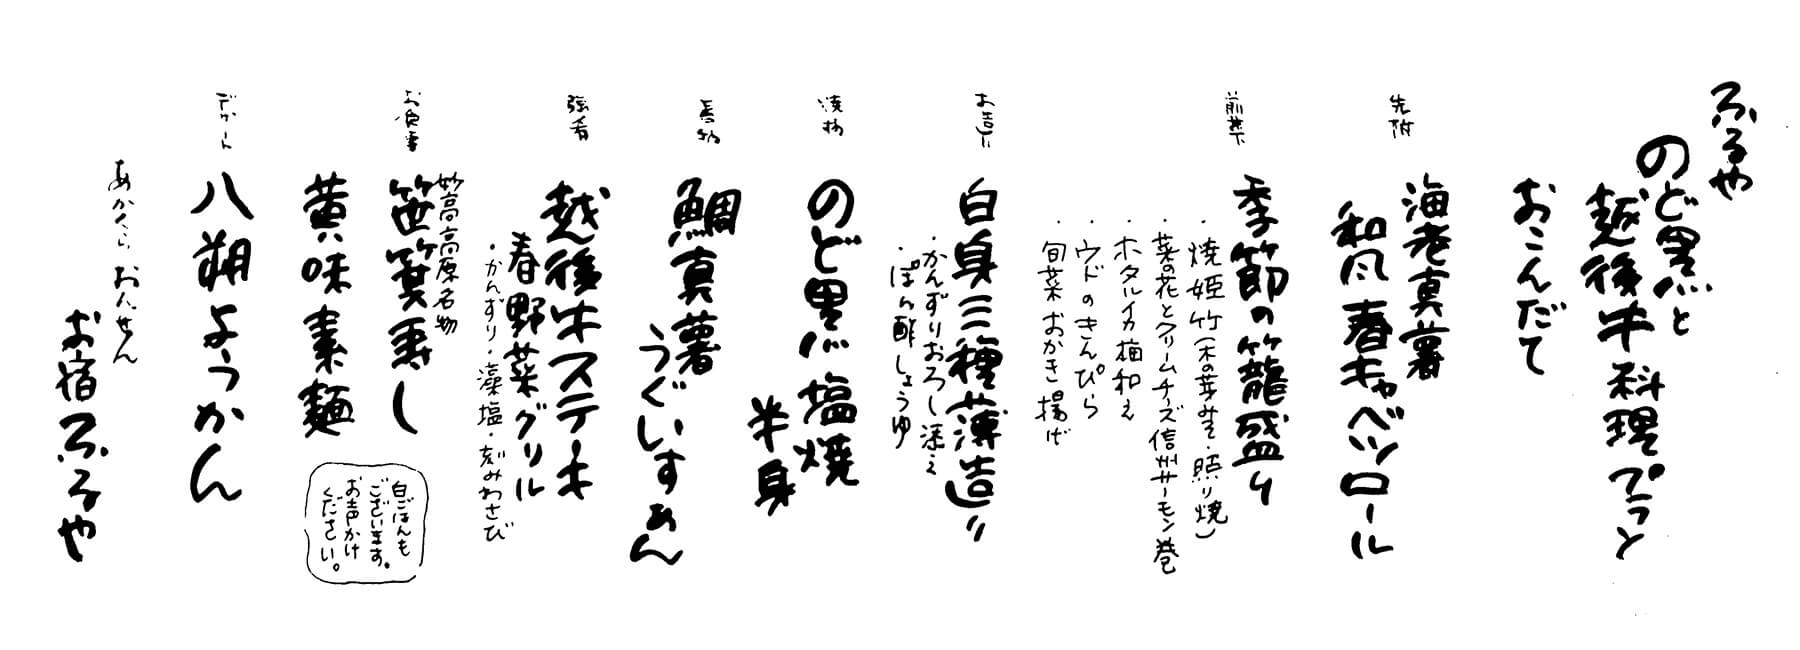 ふるや
のど黒と
越後牛料理プラン
おこんだて
先附
海老真薯
和風春キャベツロール
前菜
季節の籠盛り
・焼姫竹(木の芽みそ・照り焼)
・菜の花とクリームチーズ信州サーモン巻
・ホタルイカ梅和え
・ウドのきんぴら
・旬菜おかき揚げ
お造り
白身三種薄造り
・かんずりおろし添え
・ぽん酢しょうゆ
焼物
のど黒塩焼
半身
蒸物
鯛真薯
うぐいすあん
強肴
越後牛ステーキ
春野菜グリル
・かんずり・藻塩・刻みわさび
お食事
妙高高原名物
笹箕寿し
黄味素麺
白ごはんも
ございます。
お声かけ
ください。
デザート
八朔ようかん
あかくらおんせん
お宿ふるや